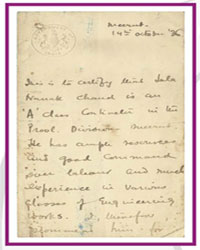 Meerut.
14th october
This is to certify that Lala
Nanak Chand is an
'A' class Contractor in the
Provl. Division Meerut.
He has ample resources
and good command
over labour and much
experience in various
classes of Engineering
works. I therefore
recommend him for